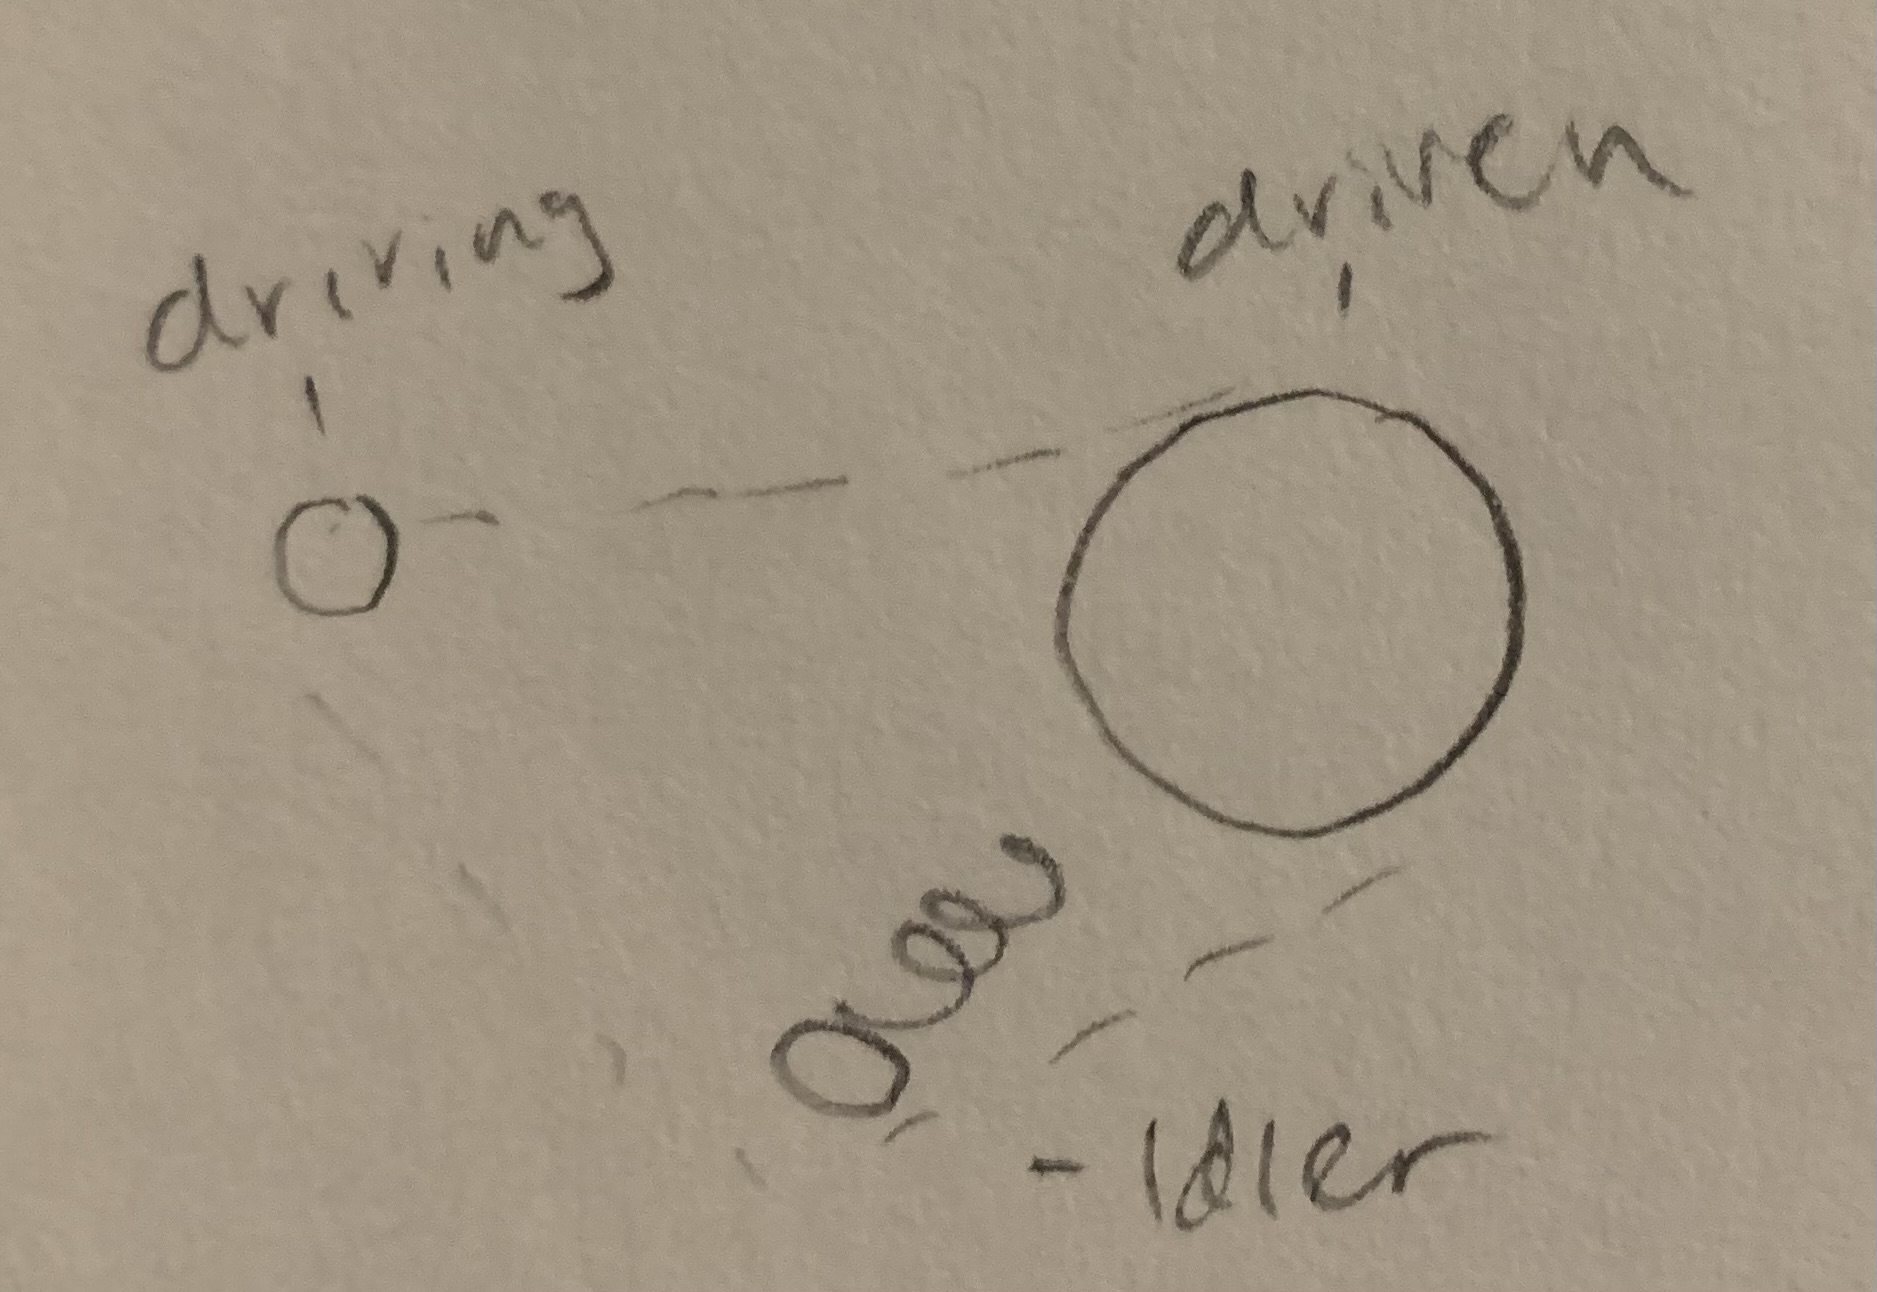 driving
driven
- Idler